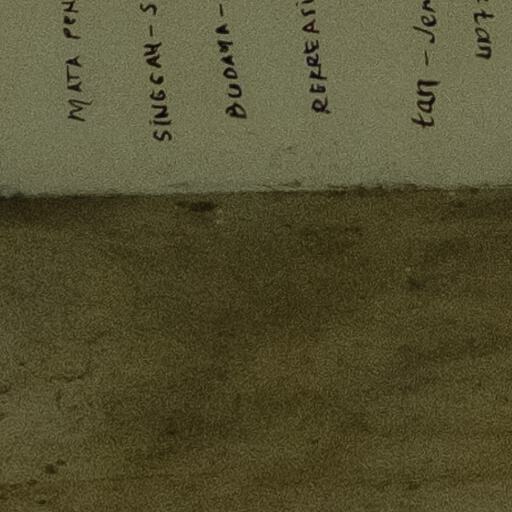 MATA PEN
SINGGAH-S
BUDAYA-
REKREASI
tan - Jer